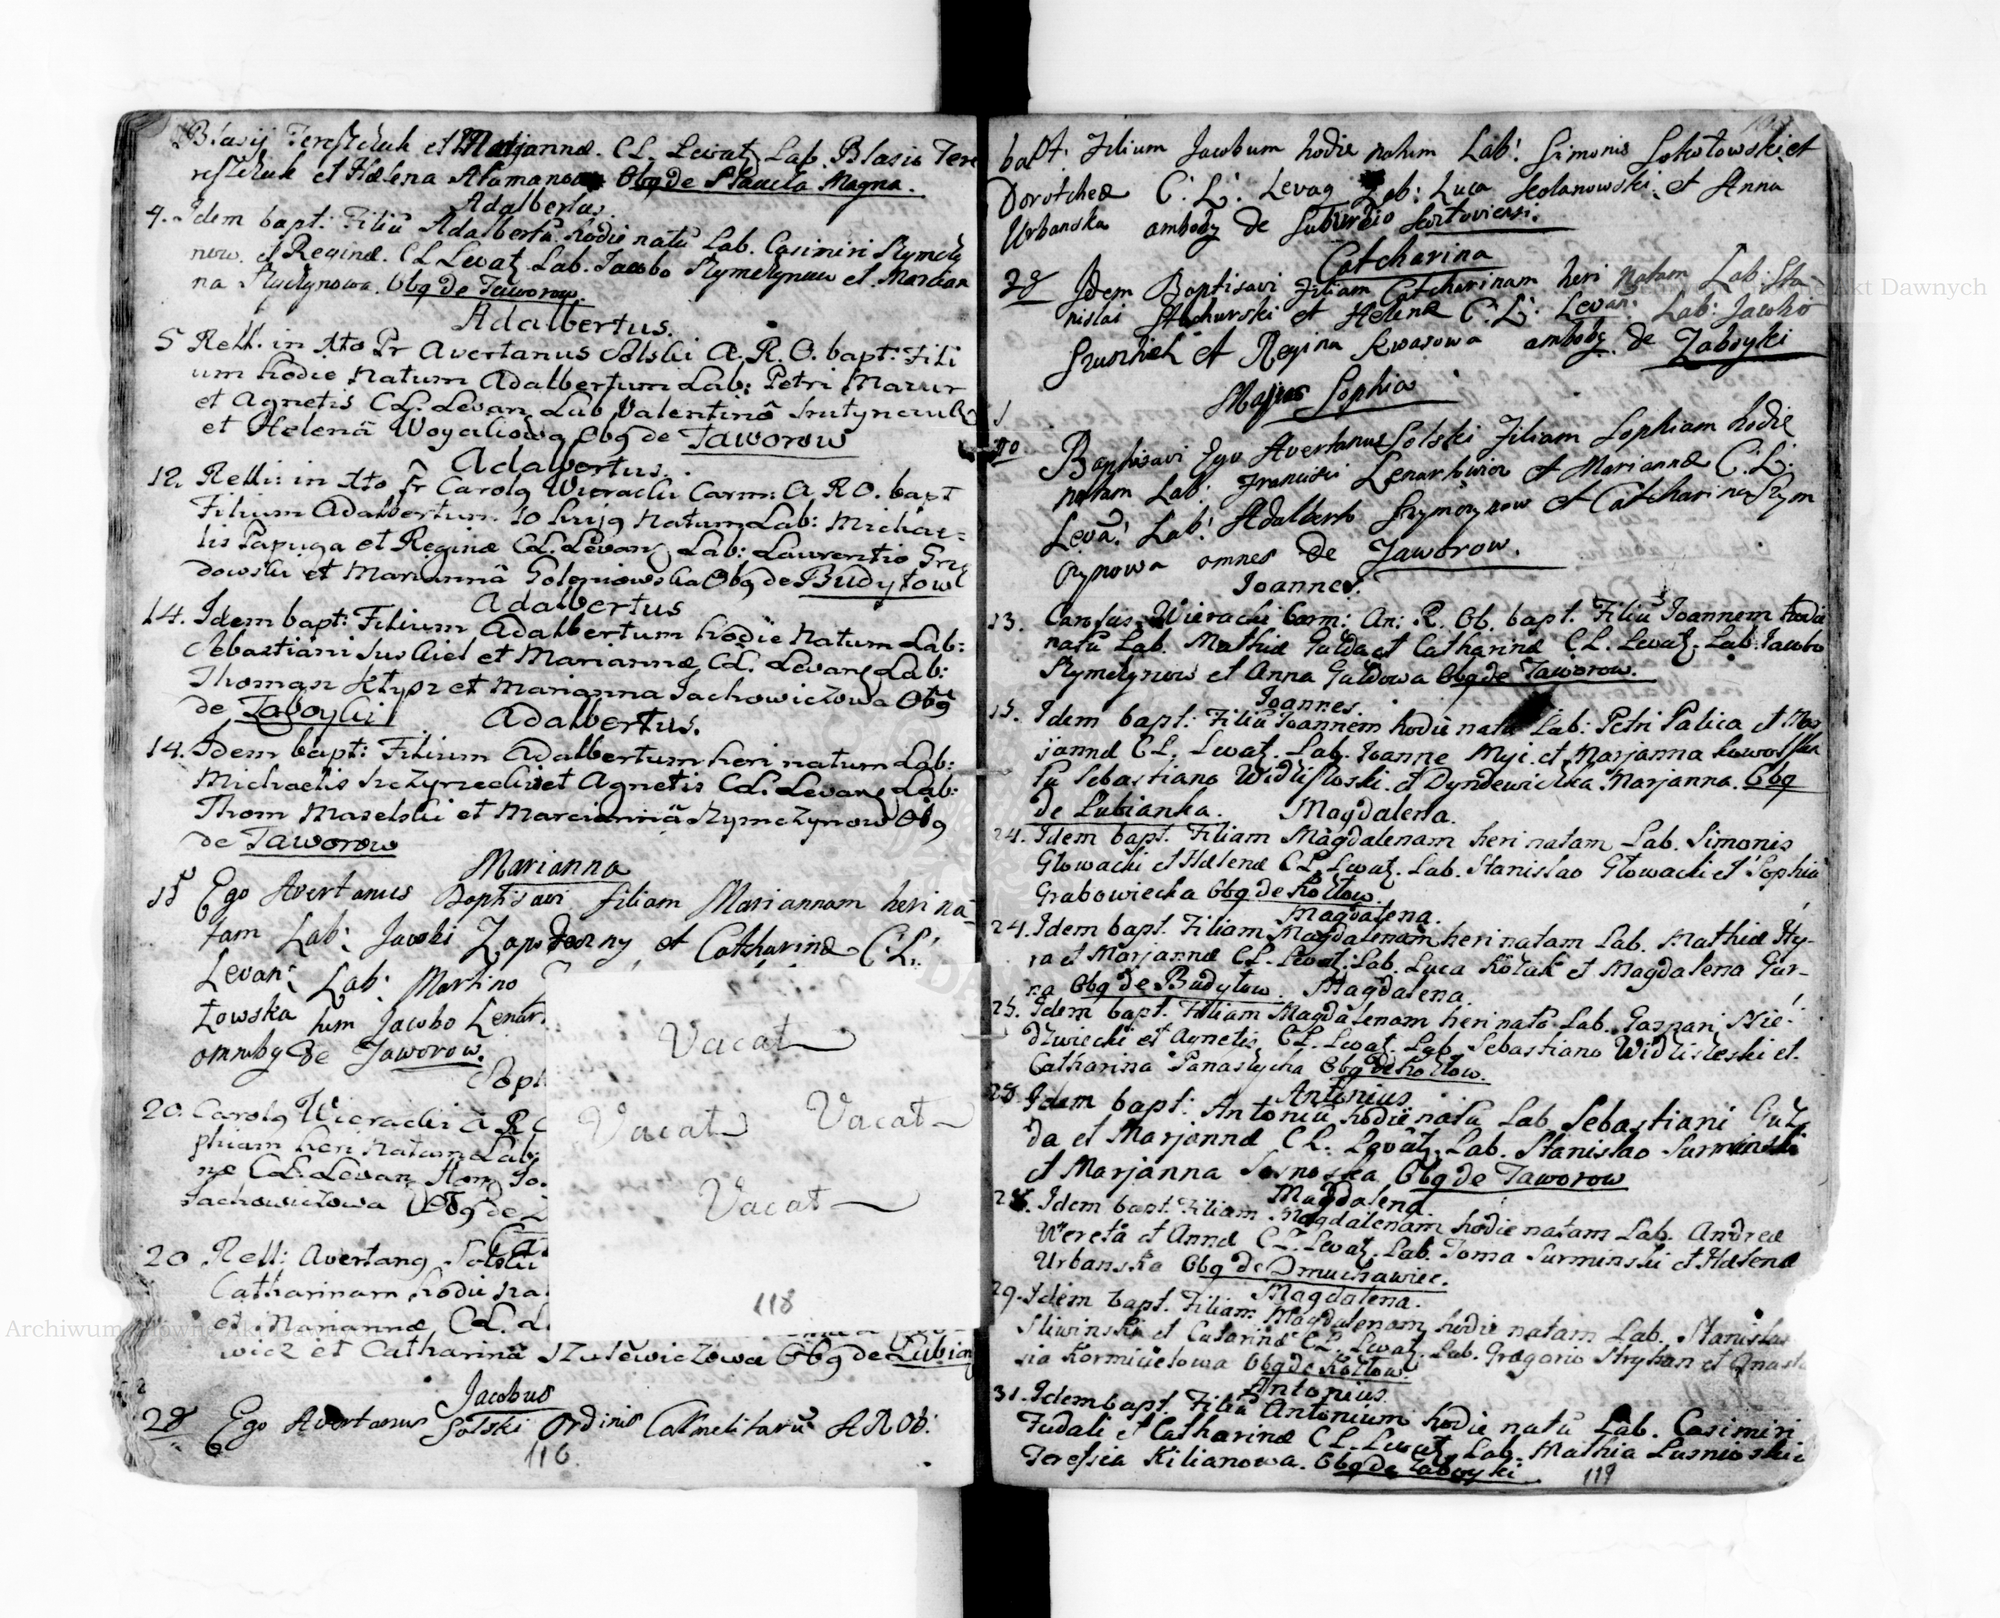 Blasij Tereszczuk et Marjannæ. CL. Levatz Lab. Blasio Tere
reszczuk et Hælena Atamanow Obg de Stawcla Magna.
Adalbertus.
4. Idem bapt: Filiū Adalbertū hodie natū Lab. Casimiri Szymczy
now. et Reginæ. CL Levatz Lab. Jacobo Szymczynow et Marcian
na Szyczynowa. Obg de Jaworow.
Adalbertus.
5 Rell. in Xto Pr Avertanus Solski A. R. O. bapt: Fili
um hodie natum Adalbertum Lab: Petri Mazur
et Agnetis CL. Levan Lab Valentino
et Helenā Woyciliowa Obg de Jaworow
Adalbertus.
12. Rell: in Xto Fr Carolg Wieracki Carm: A R O. bapt
Filium Adalbertum 10 hujg natum Lab: Michae=
lis Papuga et Reginæ CL. Levang Lab: Laurentio Gru
dowski et Mariannā Golgniowska Obg de Budytow
Adalbertus
14. Idem bapt: Filium Adalbertum hodie natum Lab:
Sebastiani et Mariannæ CL. Levang Lab:
Thoman et Marianna Jachowiczowa Obg
de Zaboyki
Adalbertus.
14. Idem bapt: Filium Adalbertum heri natum Lab:
Michaelis et Agnetis CL. Levang Lab:
Thom Maselski et Marciannā Szymczynow Obg
de Jaworow
Marianna
15 Ego Avertanus Baptisavi filiam Mariannam heri na
tam Lab: Jacobi et Catharinæ C: L:
Levan: Lab: Martino
towska tum Jacobo Lenar
omnibg de Jaworow.
Soph
20. Carolg Wieracki A R O
phiam heri natam Lab:
næ CL. Levan Thom Jo
Jachowiczowa Obg de
20 Rell: Avertang Solski
Catharinam hodie na
et Mariannæ CL. L
wicz et Catharinā Szulewiczowa Obg de Lubian
Jacobus
28 Ego Avertanus Solski Ordinis Carmelitarū A R Ob:
116.
Vacat
Vacat Vacat
Vacat
118
bapt: Filium Jacobum hodie natum Lab: Simonis Sokołowski et
Dorotheæ C: L: Levag Lab: Luca Skolanowski et Anna
Urbanska ambobg de Suburbio
Catcharina
28 Idem Baptisavi Filiam Catcharinam heri natam Lab: Sta
nislai et Helenæ C: L: Levan: Lab: Jacobo
et Regina Kwasowa ambobg de Zaboyki
Majus Sophia
1
Baptisavi Ego Avertanus Solski Filiam Sophiam hodie
natam Lab: Francisci et Mariannæ C: L:
Levā: Lab: Adalberto Szymczynow et Catcharina Szym
czynowa omnes de Jaworow.
Joannes.
13. Carolus Wieracki Carm: An: R. Ob. bapt. Filiū Joannem hodie
natū Lab. Mathiæ Gulda et Catharinæ CL. Levatz. Lab. Jacobo
Szymczynow et Anna Guldowa Obg de Jaworow.
Joannes.
15. Idem bapt: Filiū Joannem hodie natū Lab: Petri Palica et Mar
jannæ CL. Levatz. Lab. Joanne Myi. et Marjanna
Sebastiano et Dyndewiczka Marjanna. Obg
de Lubianka.
Magdalena.
24. Idem bapt. Filiam Magdalenam heri natam Lab. Simonis
Głowacki et Hælenæ CL. Levatz. Lab. Stanislao Głowacki et Sophia
Grabowiecka Obg de Kozłow.
Magdalena.
24. Idem bapt. Filiam Magdalenam heri natam Lab. Mathiæ Hy-
ra et Marjannæ CL. Levatz. Lab. Luca Kozak et Magdalena Gur-
na Obg de Budytow.
Magdalena.
25. Idem bapt. Filiam Magdalenam heri natā Lab. Gaspari Nie-
dzwiecki et Agnetis, CL. Levat. Lab. Sebastiano et
Catharina Panaszycha Obg de Kozłow.
Antonius
28. Idem bapt: Antoniū hodie natū Lab Sebastiani Gul
da et Marjannæ CL. Levatz. Lab. Stanislao Surminski
et Marjanna Sosnoska Obg de Jaworow
Magdalena.
28. Idem bapt: Filiam Magdalenam hodie natam Lab. Andreæ
Weretā et Annæ CL. Levatz. Lab. Toma Surminski et Hælena
Urbanska Obg de Dmuchawiec.
Magdalena.
29. Idem bapt. Filiam Magdalenam hodie natam Lab. Stanislai
Sliwinski et Catarinæ CL. Levatz. Lab. Gregorio Stryhan et Anasta
sia Kormiczelowa Obg de Kozłow.
Antonius
31. Idem bapt. Filiū Antonium hodie natū Lab. Casimiri
Fudali et Catharinæ CL. Levatz Lab. Mathia Lusnioski
Teressia Kilianowa. Obg de Zaboyki
119
Archiwum Główne Akt Dawnych
Archiwum Główne Akt Dawnych